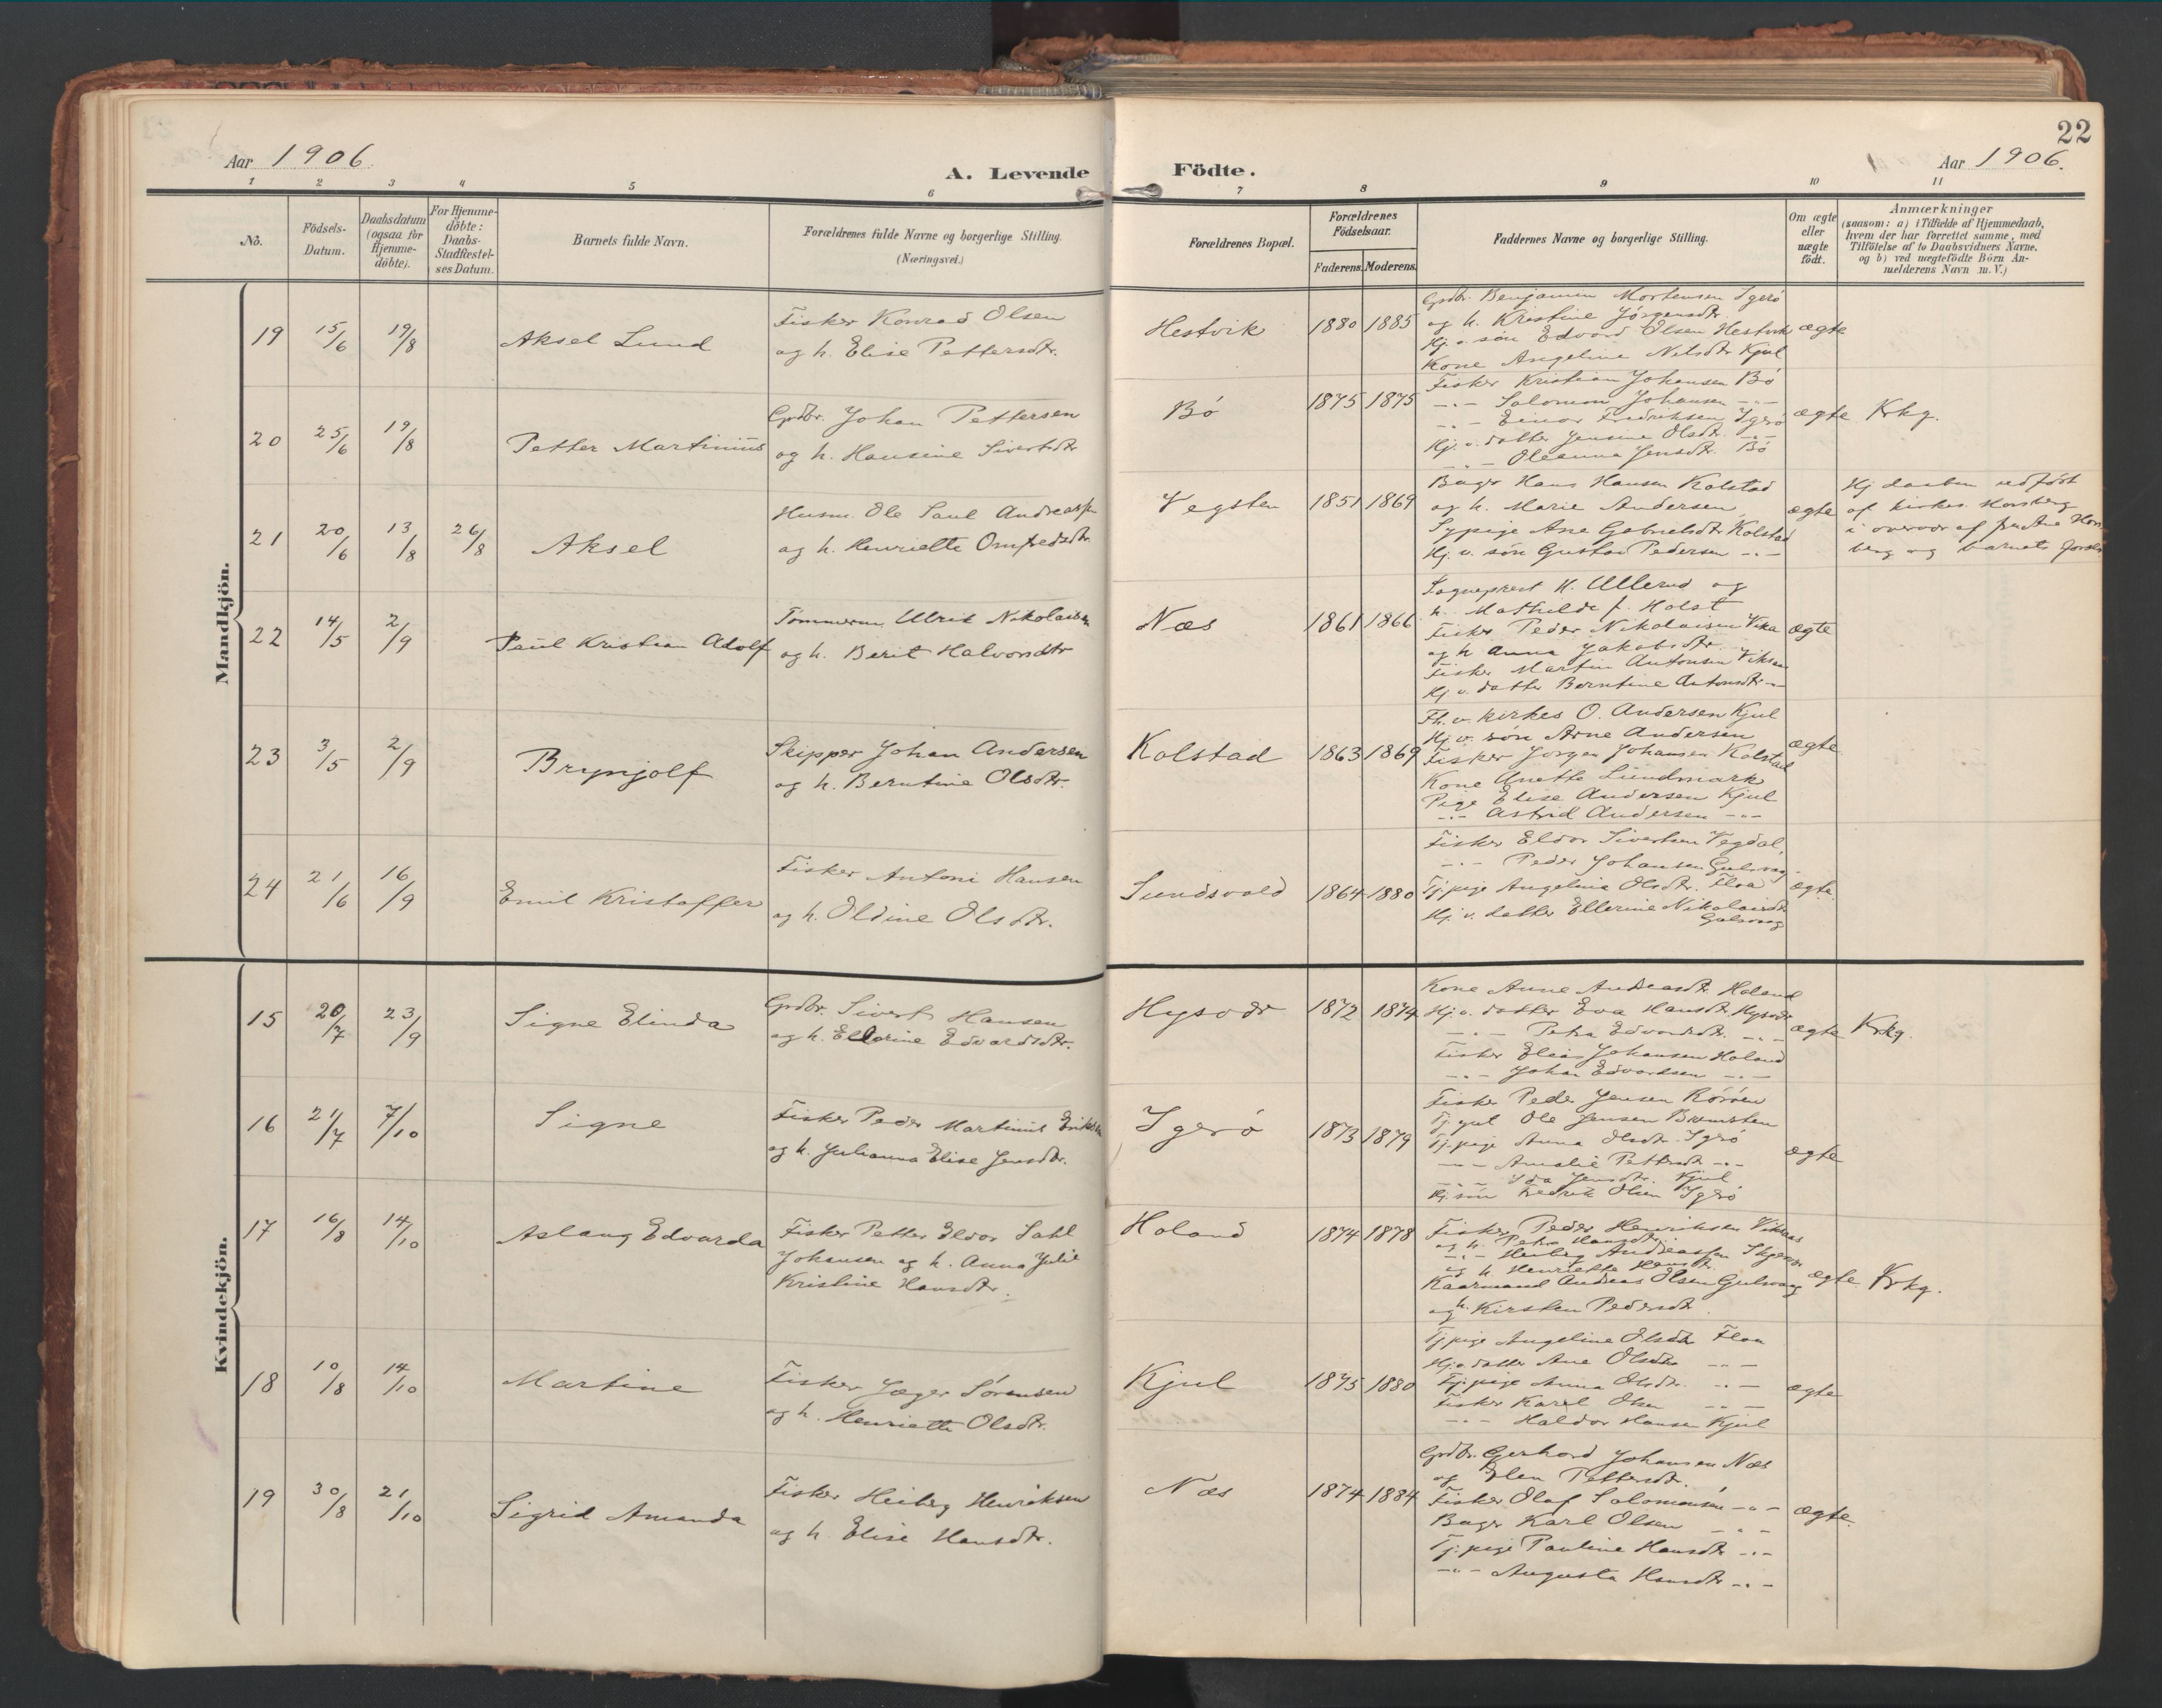 22
Aar 1906.
A. Levende Födte.
Aar 1906.
1 2 3 4 5 6 7 8 9 10 11
Nò.
Födsels-
Datum.
Daabsdatum
(ogsaa for
Hjemme-
döbte).
For Hjemme-
döbte:
Daabs-
Stadfæstel-
ses Datum.
Barnets fulde Navn.
Forældrenes fulde Navne og borgerlige Stilling.
(Næringsvei.)
Forældrenes Bopæl.
Forældrenes
Födselsaar.
Faderens. Moderens.
Faddernes Navne og borgerlige Stilling.
Om ægte
eller
uægte
födt.
Anmærkninger
(saasom: a) i Tilfælde af Hjemmedaab,
hvem der har forrettet samme, med
Tilföielse af to Daabsvidners Navne,
og b) ved uægtefödte Börn An-
melderens Navn m.V.)
Mandkjön.
19 15/6 19/8 Aksel Lund
Fisker Konrad Olsen
og h. Elise Pettersdtr.
Hestvik 1880 1885
Gprdbr. Benjamin Mortensen Igerö
og h. Kristine Jörgensdtr.
Hj. v. sön Edvard Olsen Hestvik
Kone Angeline Nilsdtr Kjul
ægte
20 25/6 19/8 Petter Martinius
Gprdbr. Johan Pettersen
og h. Hansine Sivertsdtr
Bö 1875 1875
Fisker Kristian Johansen Bö
-"- Salomon Johansen -"-
-"- Einar Fredriksen Igerö
Hj. v. datter Jensine Olsdtr. -"-
-"- Oleanna Jensdtr. Bö
ægte Krkg.
21 20/6 13/8 26/8 Aksel
Husm. Ole Paul Andreassen
og h. Henriette Omfredsdtr.
Vegsten 1851 1869
Bager Hans Hansen Kolstad
og h. Marie Andersen
Sypige Ane Gabrielsdtr Kolstad
Hj. v. sön Gustav Pedersen -"-
ægte
Hj daaben udfört
af kirkes. Horsberg
i overvær af fru Ane Hors
berg og barnets foræl
22 14/5 2/9 Paul Kristian Adolf
Tömmerm. Ulrik Nikolaisen
og h. Berit Halvorsdtr
Næs 1861 1866
Sogneprest H. Ullerud og
h. Mathilde f. Holst
Fisker Peder Nikolaisen Vika
og h Anna Jakobsdtr.
Fisker Martin Antonsen Viksaas
Hj. v. datter Berntine Antonsdtr -"-
ægte
23 3/5 2/9 Brynjolf
Skipper Johan Andersen
og h. Berntine Olsdtr.
Kolstad 1863 1869
Fh. v. kirkes O. Andersen Kjul
Hj. v. sön Arne Andersen
Fisker Jörgen Johansen Kolstad
Kone Anette Lundmark
Pige Elise Andersen Kjul
-"- Astrid Andersen -"-
ægte
24 21/6 16/9 Emil Kristoffer
Fisker Antoni Hansen
og h. Oldine Olsdtr.
Sundsvold 1864 1880
Fisker Eldor Sivertsen Vegdal,
-"- Peder Johansen Gulsvag
Tj. pige Angelina Olsdtr. Floa
Hj. v. datter Ellerine Nikolaisdtr
Gulsvag
ægte
Kvindekjön.
15 20/7 23/9 Signe Elinda
Gprdbr. Sivert Hansen
og h. Ellarine Edvardsdtr.
Hysodr 1872 1874
Kone Anne Andreasdtr. Holand
Hj. v. datter Eva Hansdtr. Hysodr
-"- Petra Edvardsdtr. -"-
Fisker Elias Johansen Holand
-"- Johan Edvardsen -"-
ægte Krkg.
16 21/7 7/10 Signe
Fisker Peder Martinus Eriksen
og h. Julianna Elise Jensdtr.
Igerö 1873 1879
Fisker Peder Jensen Röröen
Tj. gut Ole Jensen Bremsten
Tj. pige Anna Olsdtr. Igerö
-"- Amalie Pettersdtr -"-
-"- Ida Jensdtr. Kjul
Hj. sön Fredrik Olsen Igerö
ægte
17 16/8 14/10 Aslaug Edvarda
Fisker Petter Eldor Dahl
Johansen og h. Anna Julie
Kristine Hansdtr.
Holand 1874 1878
Fisker Peder Henriksen Viksaas
og h. Petra Hansdtr.
-"- Heiberg Andreassen
og h. Henriette Hansdtr.
Kaarmand Andreas Olsen Gulsvag
og h. Kirsten Pedersdtr.
ægte Krkg.
18 10/8 14/10 Martine
Fisker Jæger Sörensen
og h. Henriette Olsdtr.
Kjul 1875 1880
Tj. pige Angeline Olsdtr Floa
Hj. v. datter Ane Olsdtr -"-
Tj. pige Anna Olsdtr. -"-
Fisker Karel Olsen -"-
-"- Haldor Hansen Kjul
ægte
19 30/8 21/10 Sigrid Amanda
Fisker Heiberg Henriksen
og h. Elise Hansdtr.
Næs 1874 1884
Gprdbr. Gerhard Johansen Næs
og Elen Pettersdtr.
Fisker Olaf Salomonsen -"-
Bager Karl Olsen -"-
Tj. pige Pauline Hansdtr -"-
-"- Augusta Hansdtr -"-
ægte